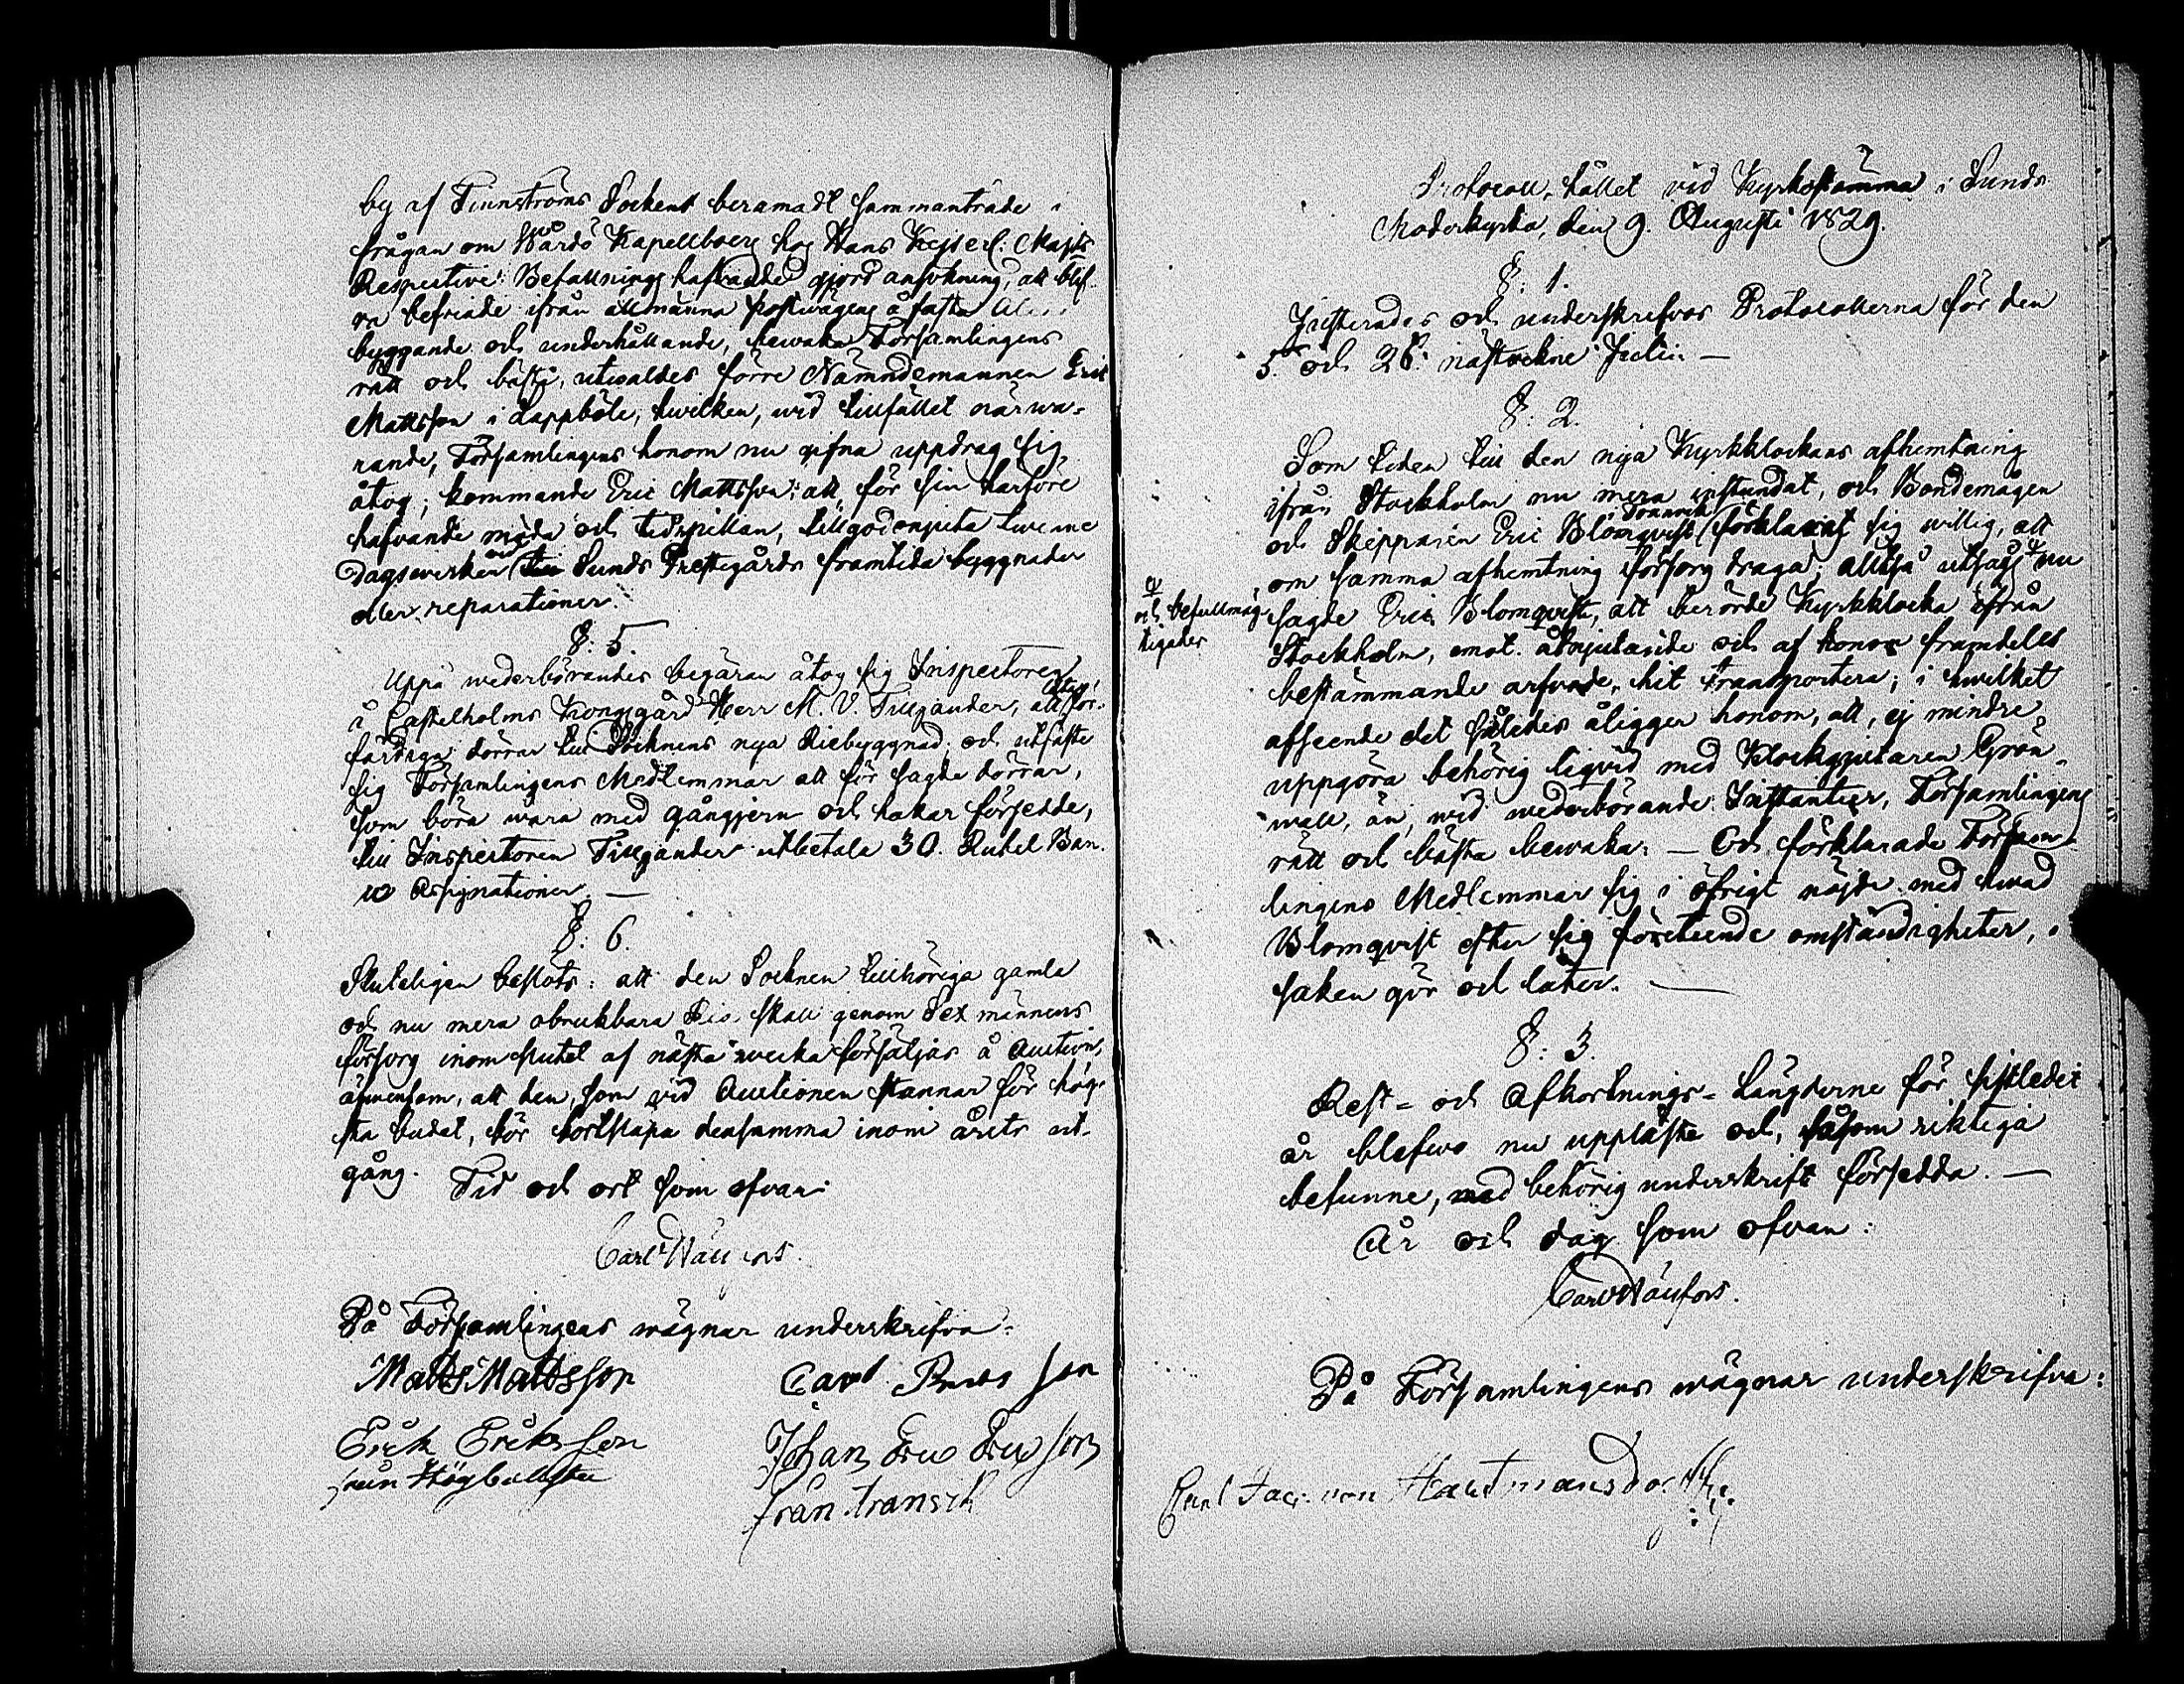 by af Finnströms Sockens beramadt sammanträde i
frågan om Wårdö Kapellboers hos Hans Kejserl: Majts
Respective Befallningshafvande gjord ansökning, att blif-
va befriade ifrån allmänna postvägens å fasta
byggande och underhållande, bewaka Församlingens
rätt och bästa, utwaldes förre Nämndemannen Eric
Mattsson i Lappböle, hwilken, wid tillfället närwa-
rande, Församlingens honom nu gifna uppdrag sig
åtog; kommande Eric Mattsson att, för sin härföre
hafvande möda och tidspillan, tillgodonjuta twenne
Dagswerken wid Sunds Prestegårds framtida byggnader
eller reparationer.
§: 5.
Uppå wederbörandes begäran åtog sig Inspectoren
å Castelholms Kongsgård Herr M. V. Tillgander, att för-
färdiga dörrar till Socknens nya Riebyggnad; och utfäste
sig Församlingens Medlemmar att för sagde dörrar,
som böra wara med gångjern och hakar försedde,
till Inspectoren Tillgander utbetala 30. Rubel Ban-
co Assignationer. —
§: 6.
Sluteligen beslöts: att den Socknen tillhöriga gamla
och nu mera obrukbara Ria skall genom Sexmännens
försorg inom slutet af nästa wecka försäljas å Auction,
äfwensom, att den, som vid Auctionen stannar för hög-
sta budet, bör bortskapa densamma inom årets ut-
gång. Tid och ort som ofvan:
Carl Wällfors.
På Församlingens wägnar underskrifva:
Matts Mattsson Carl
Erik Eriksson Johan Eric Ericsson
från Högbolsta från transvik
Protocoll, hållet vid Kyrkostämma i Sunds
Moderkyrka, den 9. Augusti 1829.
§: 1.
Justerades och underskrefvos Protocollerna för den
5. och 26. nästvekne Julii. —
§: 2.
Som tiden till den nya Kyrkklockans afhemtning
ifrån Stockholm nu mera instundat, och Bondemågen
och Skepparen Eric Blomqvist i Tranvik förklarat sig willig, att
om samma afhemtning försorg draga; alltså utsågs nu
och befullmäg-
tigades
sagde Eric Blomqvist, att berörde Kyrkklocka ifrån
Stockholm, emot åtnjutande och af honom framdeles
bestämmande arfvode, hit transportera; i hwilket
afseende det således åligger honom, att, ej mindre
uppgöra behörig liqvid med Klockgjutaren Grön-
wall, än, wid wederbörande Instantier, Församlingens
rätt och bästa bewaka: — Och förklarade Försam-
lingens Medlemmar sig i öfrigt nöjde med hwad
Blomqvist efter sig företeende omständigheter, i
saken gör och låter. —
§: 3.
Rest- och Afkortnings-Längderne för sistledit
år blefwo nu uppläste och, såsom riktiga
befunne, med behörig underskrift försedda. —
År och dag som ofvan:
Carl Wällfors.
På Församlingens wägnar underskrifva:
Carl Jac: von Hautmansdorff